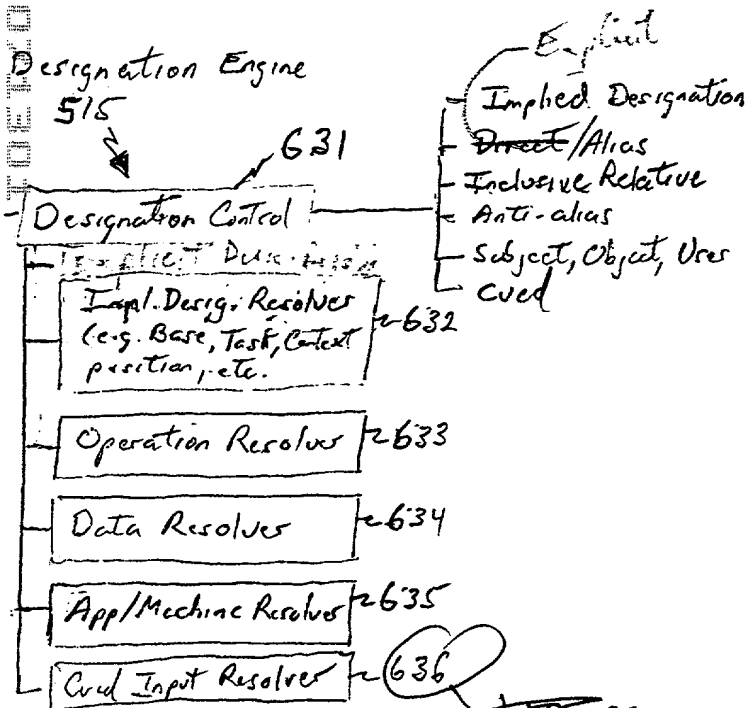 Designation Engine
515
631
Designation Control
Explicit
Implied Designation
Direct/Alias
Inclusive Relative
Anti-alias
Subject, Object, User
Cued
Impl. Desig. Resolver
(e.g. Base, Task, Context
position, etc.
632
Operation Resolver
633
Data Resolver
634
App/Machine Resolver
635
Cued Input Resolver
636